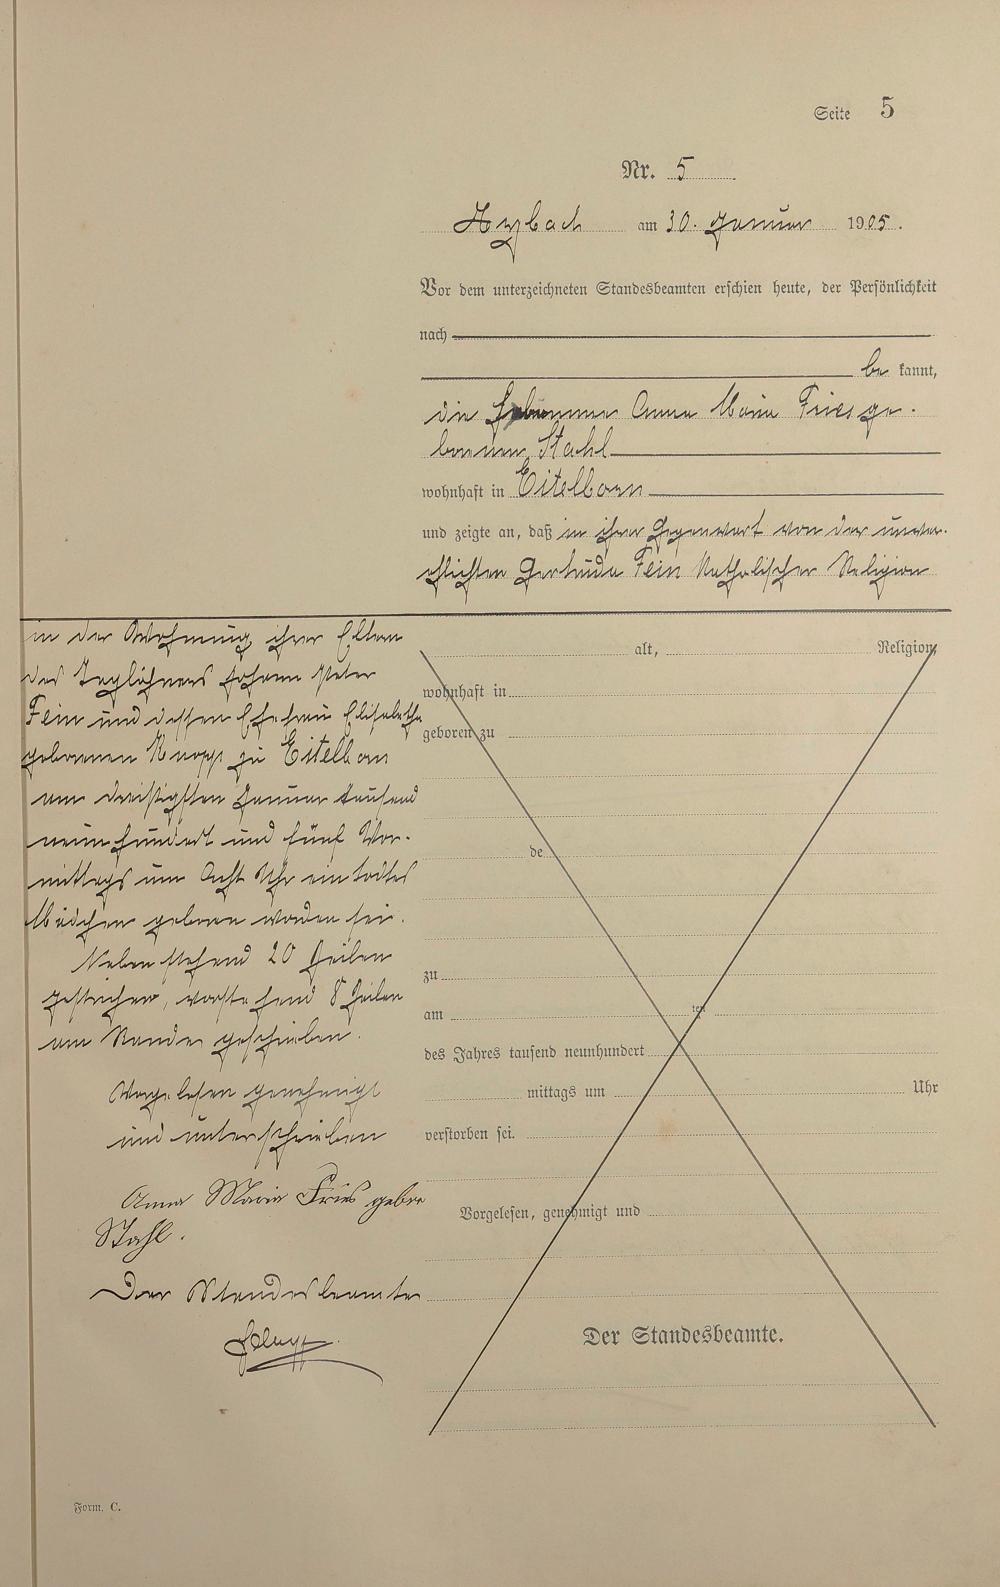 Seite 5
Nr. 5
Arzbach am 30. Januar 1905.
Vor dem unterzeichneten Standesbeamten erschien heute, der Persönlichkeit
nach
be kannt,
die Hebamme Anna Maria Fries ge.
borenen Stahl
wohnhaft in Eitelborn
und zeigte an, daß in ihrer Gegenwart von der unver.
ehlichten Gertruda Fein Katholischer Religion
in der Wohnung ihrer Eltern
des Taglöhners Johann Peter
Fein und dessen Ehefrau Elisabetha
geborenen Knopp zu Eitelborn
am dreisigsten Januar tausend
neunhundert und fünf Vor-
mittags um Acht Uhr ein todtes
Mädchen geboren worden sei.
Nebenstehend 20 Zeilen
gestrichen, vorstehend 8 Zeilen
am Rande geschrieben.
Vorgelesen genehmigt
und unterschrieben
Anna Maria Fries gebor
Stahl.
Der Standesbeamte
alt, Religion,
wohnhaft in
geboren zu
de
zu
am ten
des Jahres tausend neunhundert
mittags um Uhr
verstorben sei.
Vorgelesen, genehmigt und
Der Standesbeamte.
Form. C.